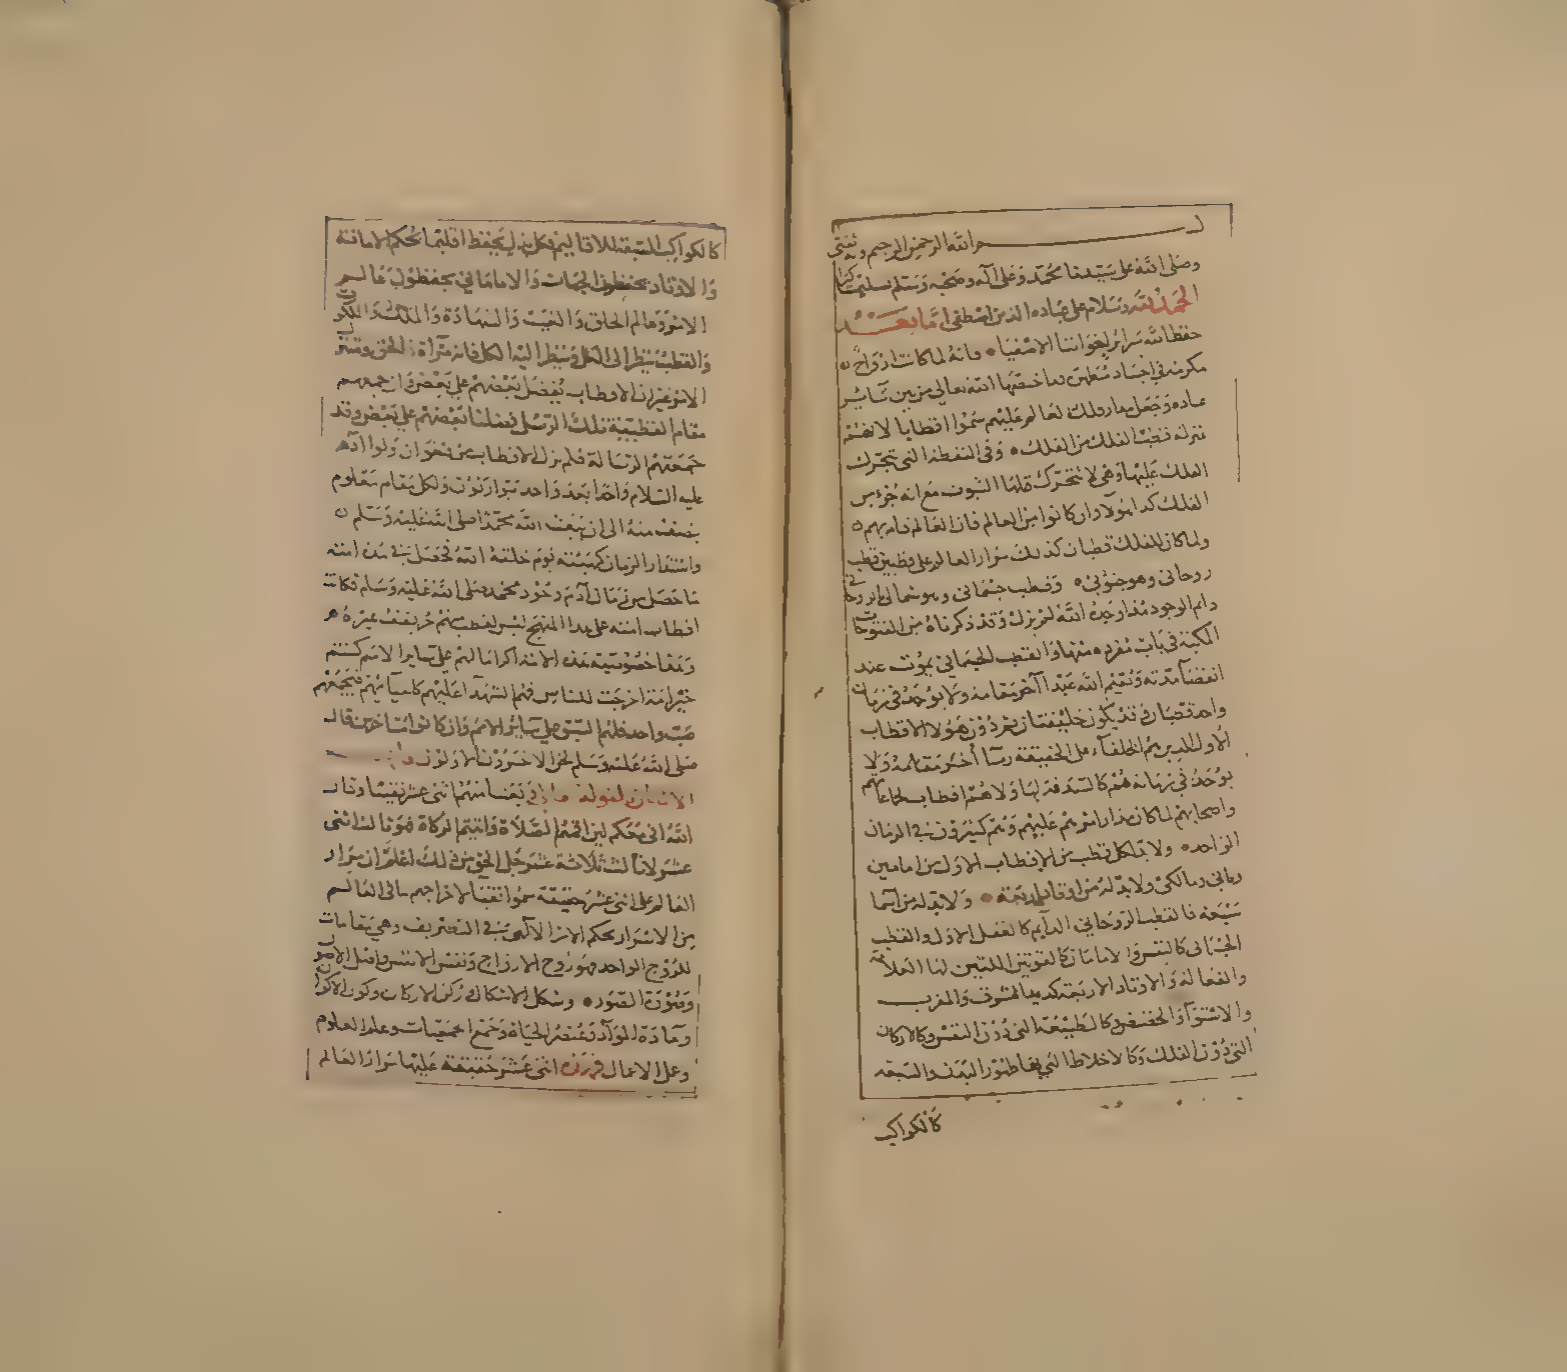 بسم الله الرحمن الرحيم وبه ثقتي
وصلى الله على سيدنا محمد وعلى آله وصحبه وسلم تسليما كثيرا
الحمد لله وسلام على عباده الذين اصطفى اما بعد
حفظ الله سرائر اخواننا الاصفياء وانه لما كانت ارواح
مكرمة في اجساد مطهرة وما خصها الله تعالى من بين سائر
عباده وجعل مدار فلك العالم عليهم سموا اقطابا لانهم
بمنزلة قطب الفلك من الفلك وفي النقطة التي تتحرك
الفلك عليها وهي لا تتحرك فلها الثبوت مع انه جزء من
الفلك كذا هؤلاء وان كانوا من العالم فان العالم قام بهم
ولما كان للفلك قطبان كذلك مدار العالم على قطبين قطب
روحاني وهو جنوبي وقطب جثماني وهو شمالي فالروحاني
دائم الوجود منذ اوجده الله لم يزل وقد ذكرناه في الفتوحات
المكية في باب مفرد منها والقطب الجثماني يموت عند
انقضا مدته ويقيم الله عبدا آخر مقامه ولا يوجد في زمان
واحد قطبان وقد يكون خليفتان بعد دون هؤلا الاقطاب
الاول الذين هم الخلفآء على الحقيقة رسما آخر مقامه ولا
يوجد في زمانه هم كالسدنة لها ولا هم اقطاب لجماعاتهم
واصحابهم لما كان مدار امرهم عليهم وهم كثيرون في الزمان
الواحد ولا بد لكل قطب من الاقطاب الاول من امامين
رباني ومالكي ولا بد له من اوتاد اربعة ولا بد له من اسما
سبعة فالقطب الروحاني الدايم كالعقل الاول والقطب
الجثماني كالنفس والامامان كالقوتين اللتين لها العلامة
والفعالة والاوتاد الاربعة كدبها المشرق والمغرب
والاستوآ والحضيض وكالطبيعة التي دون النفس وكالاركان
التي دون الفلك وكالاخلاط التي بها ظهور البدن والسبعة
كالكواكب
كالكواكب السبعة للاقاليم فكل بدل يحفظ اقليما بحكم الامانة
والاوتاد يحفظون الجهات والامامان يحفظون عالم
الامر وعالم الخلق والغيب والشهادة والملك والملكوت
والقطب ينظر الى الكل وينظر اليه الكل فانه مرآة الحق ومنتهى
الامر غير ان الاقطاب يفضل بعضهم على بعض وان جمعهم
مقام القطبية تلك الرسل فضلنا بعضهم على بعض وقد
جمعتهم الرسالة فلم يزل الاقطاب من نحو ان ولوا آدم
عليه السلام واحدا بعد واحد يتوارثون ولكل مقام معلوم
بصنف منه الى ان يبعث الله محمدا صلى الله عليه وسلم
واستدار الزمان كهيئته يوم خلقه الله فحصل في هذه امته
ما حصل من زمان آدم وجود محمد صلى الله عليه وسلم فكانت
اقطاب امته على هذا المنهج ليس لقطب منهم حرف يقف غيره
وهذا خصوصية هذه الامة اكراما لهم على ساير الامم كنتم
خير امة اخرجت للناس فهم الشهدا عليهم كانبيائهم فيجمعهم
صبة واحد فلهم السبق على ساير الامم وان كانوا متاخرين قال
صلى الله عليه وسلم نحن الآخرون الاولون
الانسان لقوله تعالى وبعثنا منهم اثني عشر نقيبا وقال
الله اني معكم لئن اقمتم الصلاة وآتيتم الزكاة فهؤلاء اثني
عشر ولا ثالث ثلاثة عشر جل الحق عن ذلك اعلم ان مدار
العالم على اثني عشر حقيقة سموا نقبا لاخراجهم ما في العالم
من الاسرار بحكم الامر الالهي في التصريف وهي مقامات
للروح الواحد فهو روح الارواح ونفس الانفس واصل الامور
وصورة الصور وشكل الاشكال وركن الاركان وكون الاكوان
ومادة المواد وعنصر الحياة وجمع الجمعيات وعلم العلوم
وعمل الاعمال فهذه اثني عشر حقيقة عليها مدار العالم